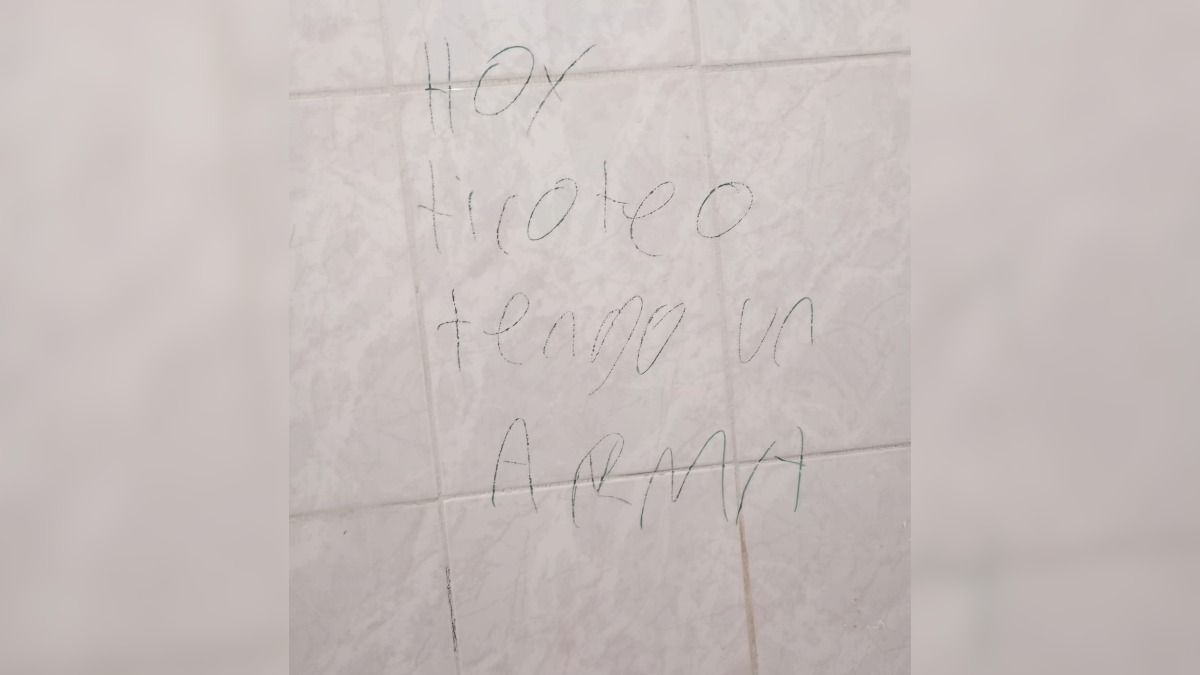 HOY
tiroteo
tengo un
ARMA